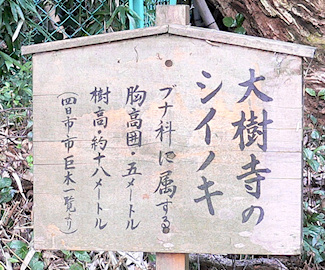 大樹寺の
シイノキ
ブナ科に属する
胸高囲・五メートル
樹高・約十八メートル
(四日市・市巨木一覧より)